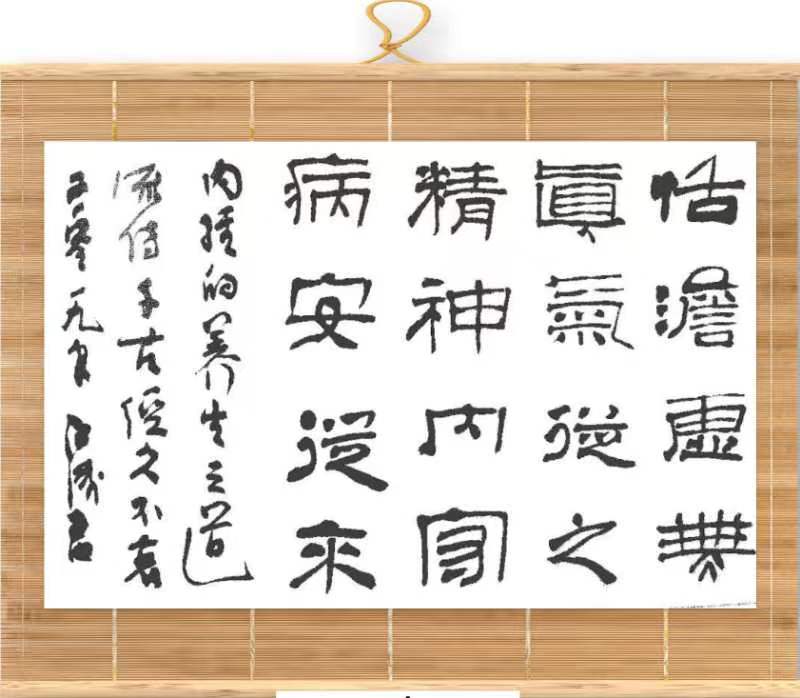 恬澹虛無
眞氣從之
精神内守
病安從来
内経的养生之道
流传千古経久不衰
二零一九年 书